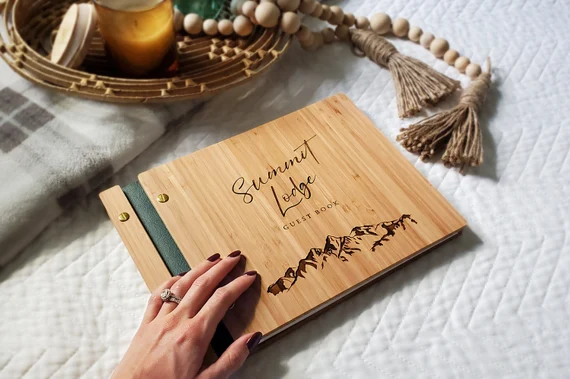 Summit
Lodge
GUEST BOOK